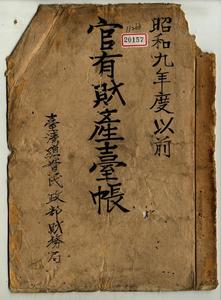 昭和九年度以前
官有財產臺帳
臺灣總督府民政部財務局
20157